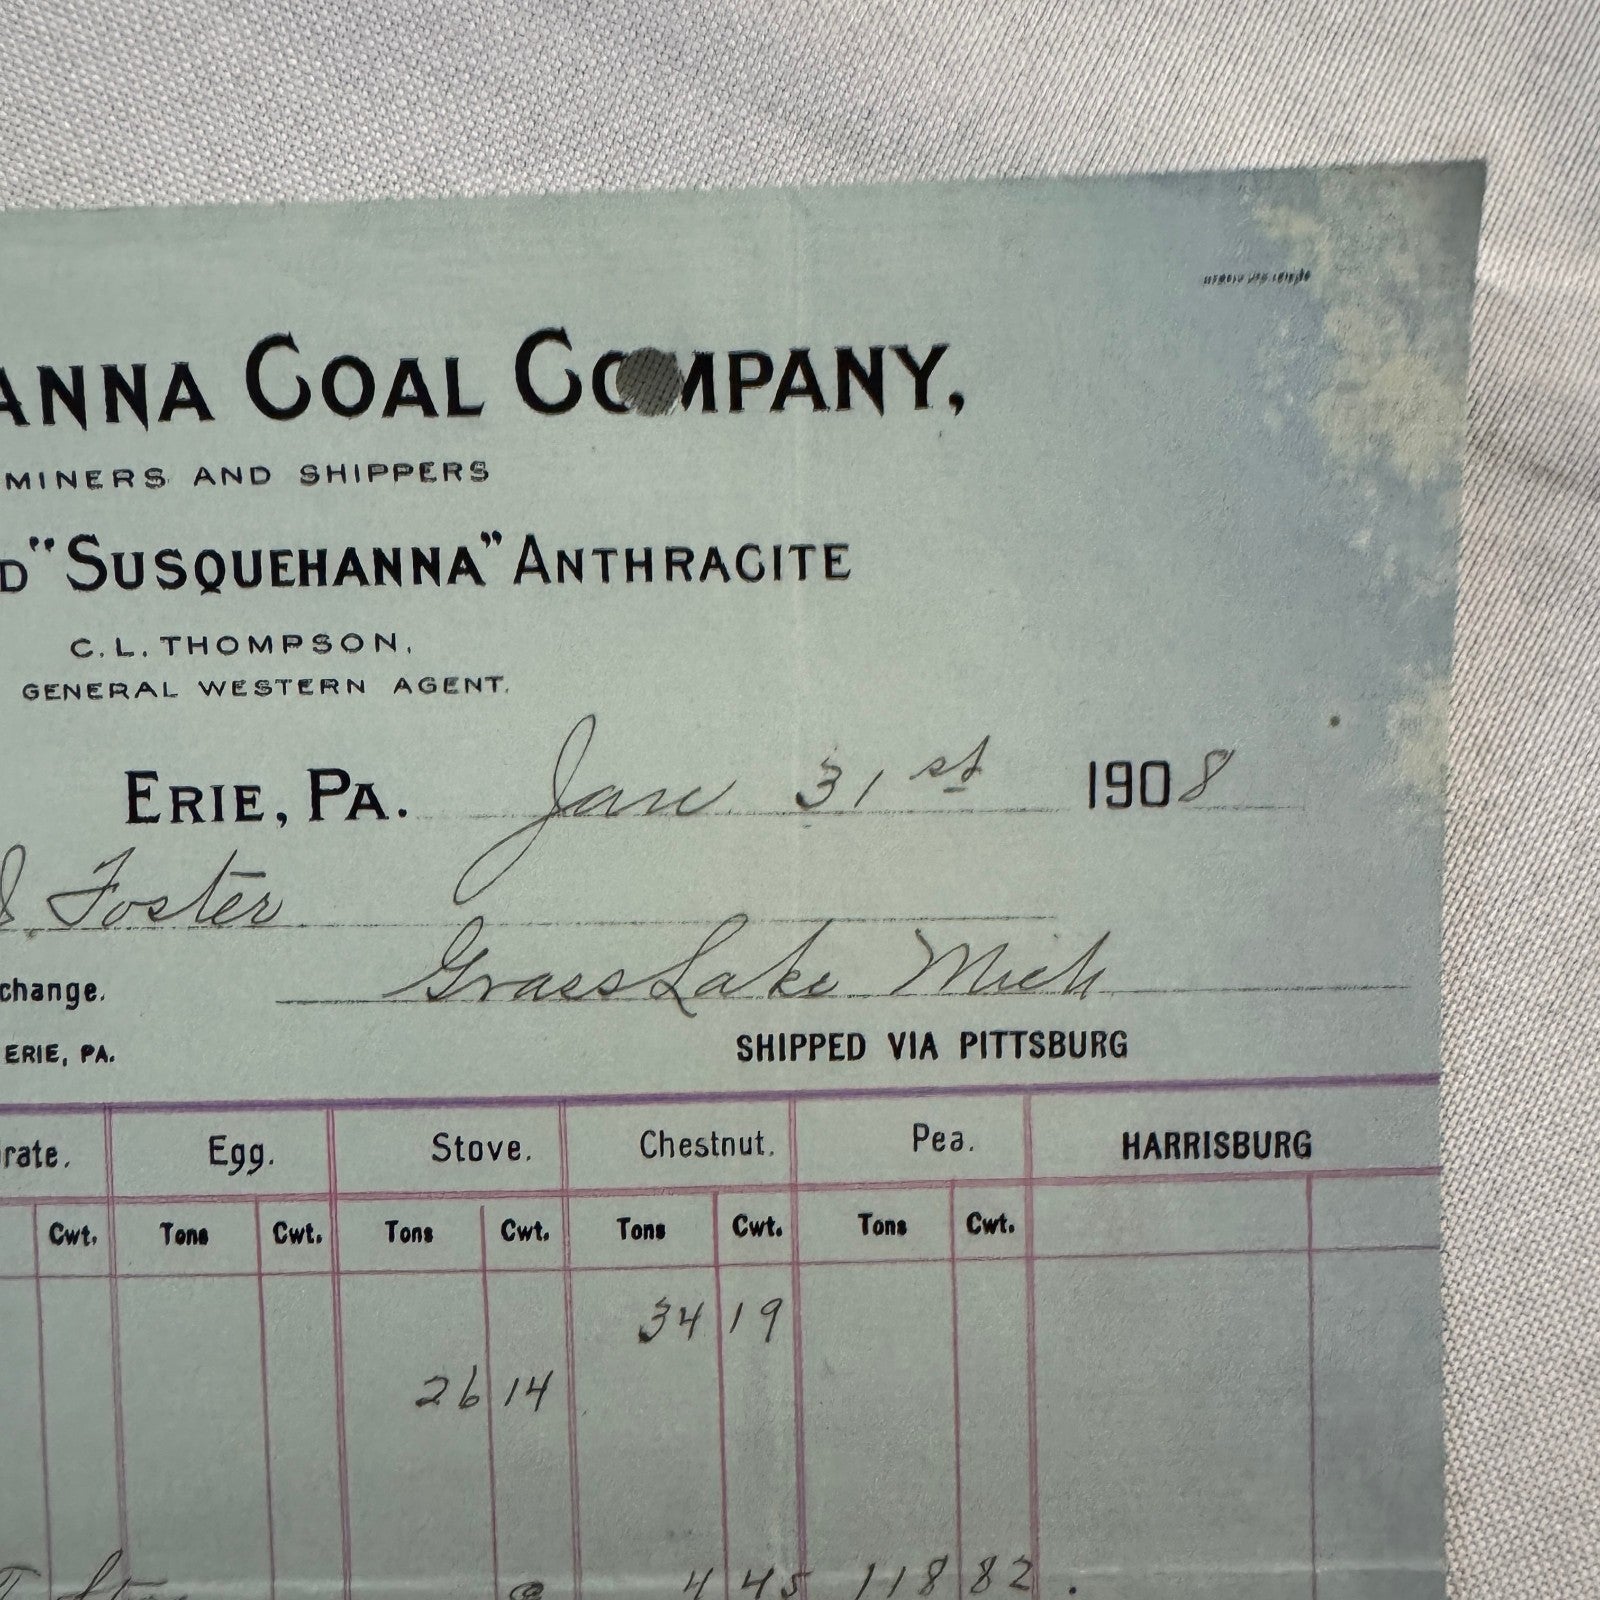 ANNA COAL COMPANY,
MINERS AND SHIPPERS
D "SUSQUEHANNA" ANTHRACITE
C. L. THOMPSON,
GENERAL WESTERN AGENT.
ERIE, PA. Jan 31st 1908
Foster
change. Grass Lake Mich
ERIE, PA. SHIPPED VIA PITTSBURG
rate. Egg. Stove. Chestnut. Pea. HARRISBURG
Cwt. Tons Cwt. Tons Cwt. Tons Cwt. Tons Cwt.
34 19
26 14
@ 4 45 118 82.